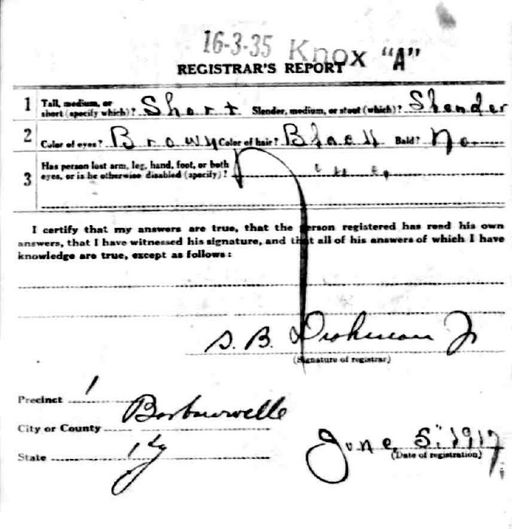 16-3-35 Knox "A"
REGISTRAR'S REPORT
1 Tall, medium, or short (specify which)? Short Slender, medium, or stout (which)? Slender
2 Color of eyes? Brown Color of hair? Black Bald? No.
3 Has person lost arm, leg, hand, foot, or both
eyes, or is he otherwise disabled (specify)?
I certify that my answers are true, that the person registered has read his own
answers, that I have witnessed his signature, and that all of his answers of which I have
knowledge are true, except as follows:
S. B. Dishman Jr
(Signature of registrar)
Precinct 1
City or County Barbourville
State Ky
June 5, 1917
(Date of registration)